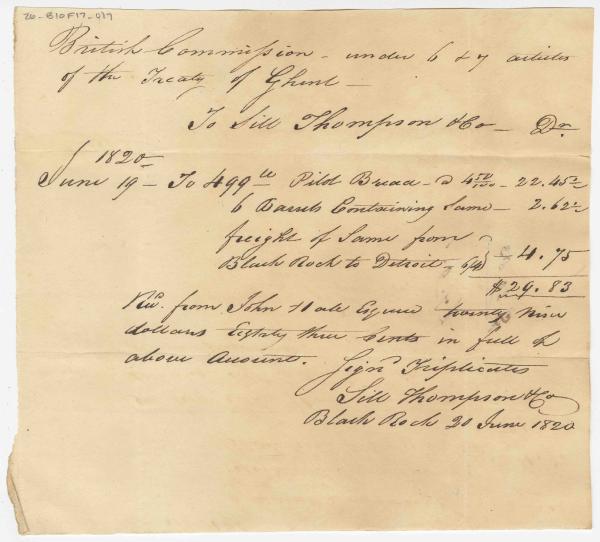 26-B10F17-017
British Commission - under 6 & 7 articles
of the Treaty of Ghent -
To Sill Thompson & Co - Dr
1820
June 19 - To 499 lb Pilot Bread - a 4 50/100 - 22.45½
6 Barrels Containing Same - 2.62½
freight of Same from
Black Rock to Detroit - 6/4 4.75
$ 29.83
Recd. from John Hale Esquire twenty Nine
dollars Eighty three Cents in full of
above Account. Signd Triplicates
Sill Thompson & Co
Black Rock 20 June 1820